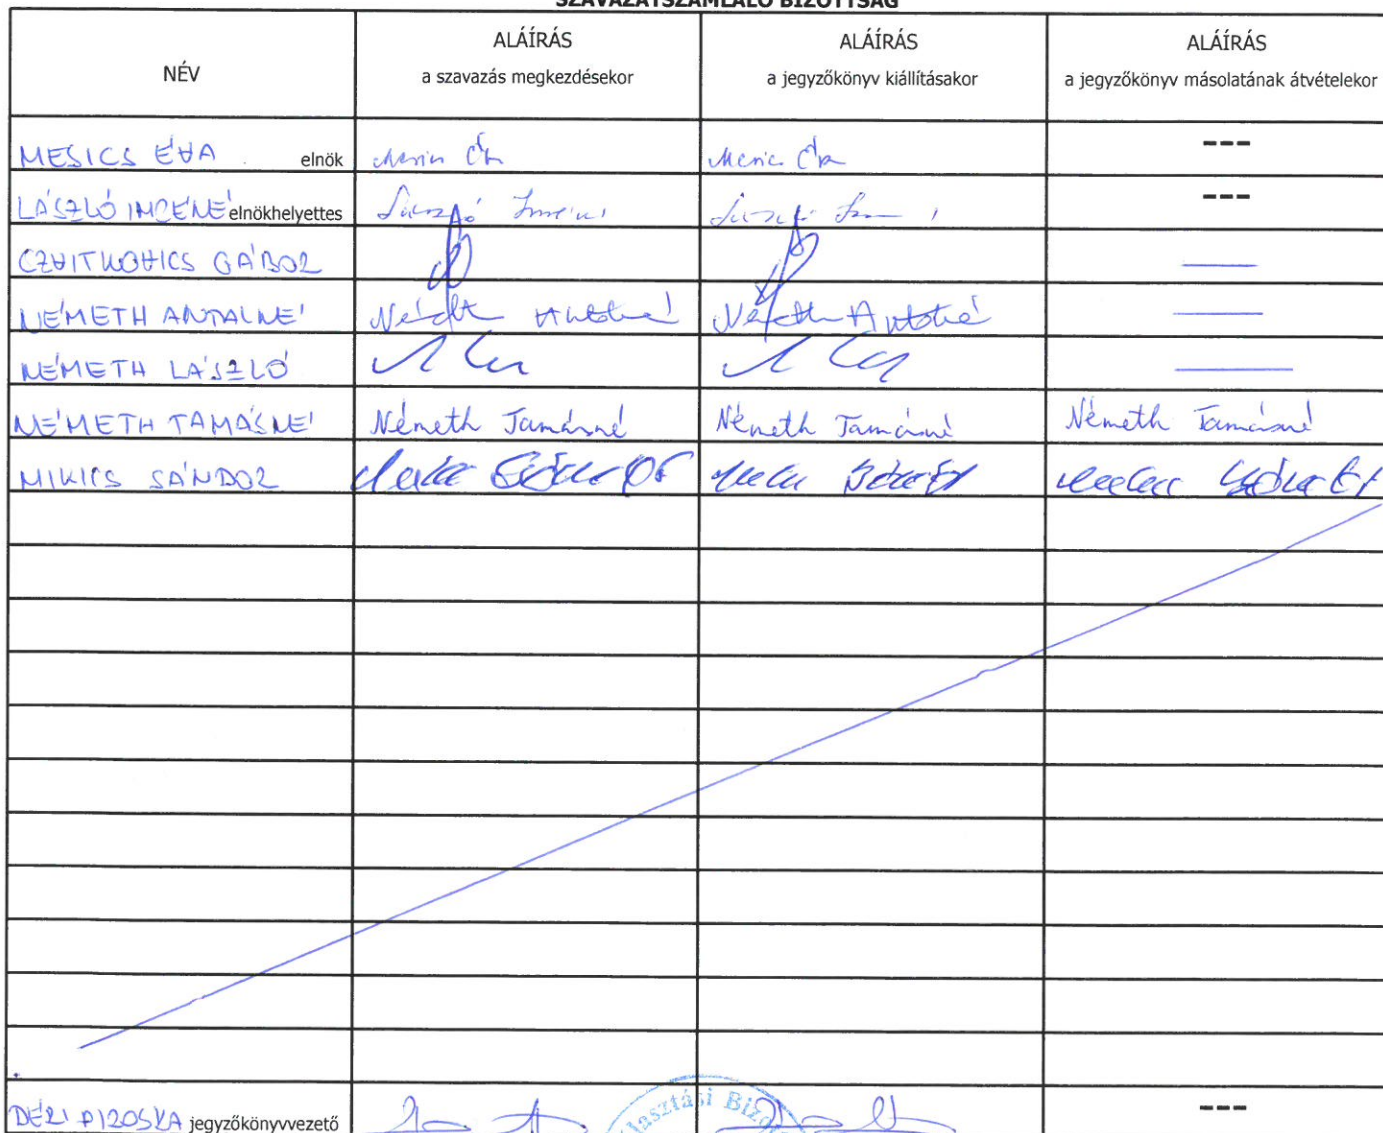 SZAVAZATSZÁMLÁLÓ BIZOTTSÁG
NÉV
ALÁÍRÁS
a szavazás megkezdésekor
ALÁÍRÁS
a jegyzőkönyv kiállításakor
ALÁÍRÁS
a jegyzőkönyv másolatának átvételekor
MESICS ÉVA elnök ---
LÁSZLÓ IMRÉNÉ elnökhelyettes László Imréné László ---
CZVITKOVICS GÁBOR
NÉMETH ANTALNÉ Németh Antalné Németh Antalné
NÉMETH LÁSZLÓ
NÉMETH TAMÁSNÉ Németh Tamásné Németh Tamásné Németh Tamásné
MIKICS SÁNDOR
DÉRI PIROSKA jegyzőkönyvvezető ---